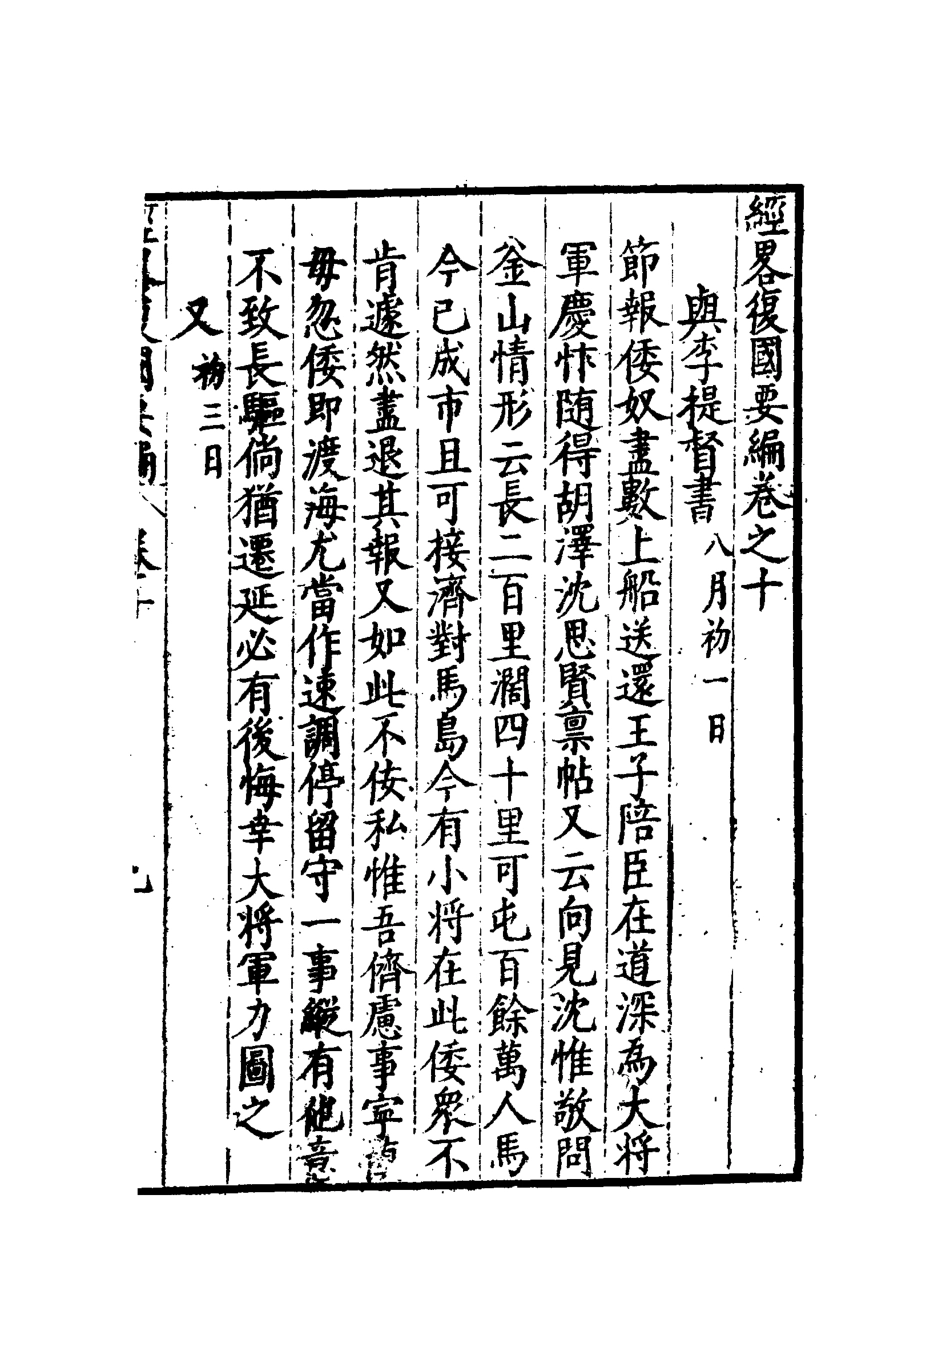 經畧復國要編卷之十
與李提督書八月初一日
節報倭奴盡數上船送還王子陪臣在道深為大將
軍慶忭随得胡澤沈思賢禀帖又云向見沈惟敬問
釡山情形云長二百里濶四十里可屯百餘萬人馬
今已成市且可接濟對馬島今有小將在此倭衆不
肯遽然盡退其報又如此不佞私惟吾儕慮事寜
毋忽倭即渡海尤當作速調停留守一事縱有他意
不致長驅倘猶遷延必有後悔幸大將軍力圖之
又初三日
經畧復國要編 卷十